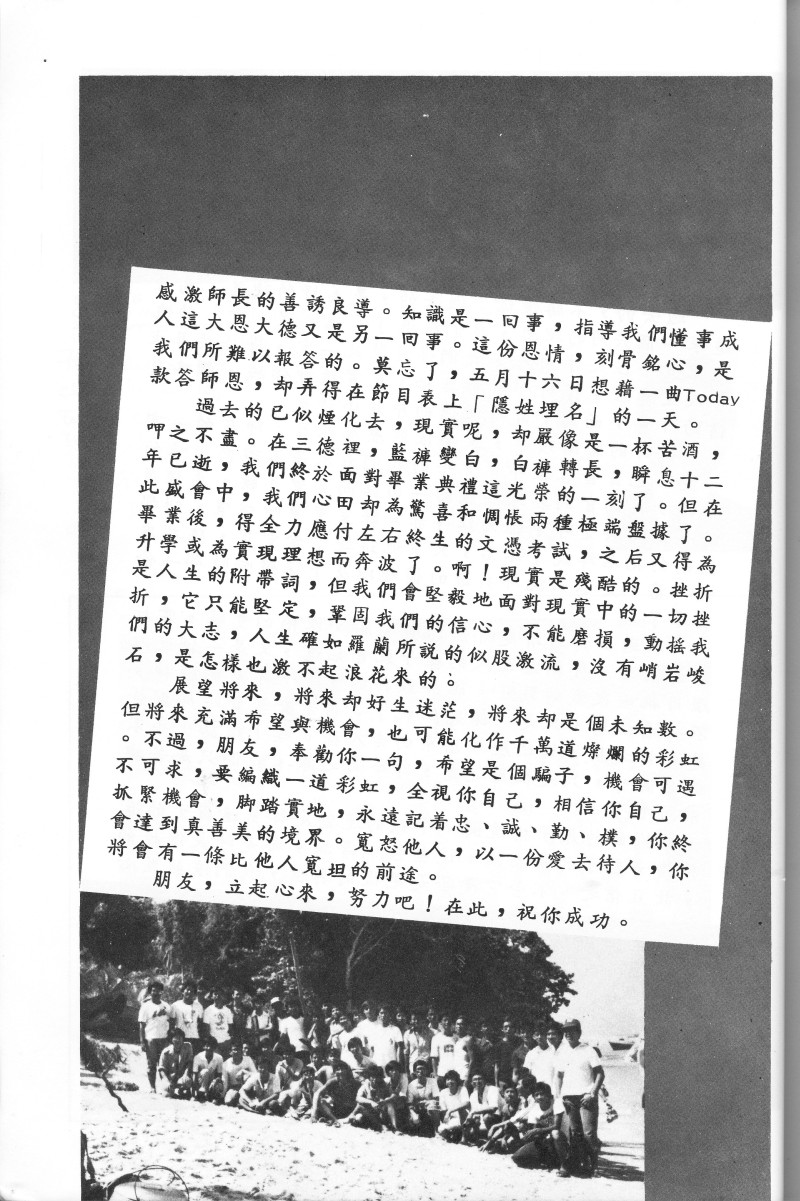 感激師長的善誘良導。知識是一回事，指導我們懂事成
人這大恩大德又是另一回事。這份恩情，刻骨銘心，是
我們所難以報答的。莫忘了，五月十六日想藉一曲Today
款答師恩，却弄得在節目表上「隱姓埋名」的一天。
過去的已似煙化去，現實呢，却嚴像是一杯苦酒，
呷之不盡。在三德裡，藍褲變白，白褲轉長，瞬息十二
年已逝，我們終於面對畢業典禮這光榮的一刻了。但在
此盛會中，我們心田却為驚喜和惆悵兩種極端盤據了。
畢業後，得全力應付左右終生的文憑考試，之后又得為
升學或為實現理想而奔波了。啊！現實是殘酷的。挫折
是人生的附帶詞，但我們會堅毅地面對現實中的一切挫
折，它只能堅定，鞏固我們的信心，不能磨損，動搖我
們的大志，人生確如羅蘭所說的似股激流，沒有峭岩峻
石，是怎樣也激不起浪花來的。
展望將來，將來却好生迷茫，將來却是個未知數。
但將來充滿希望與機會，也可能化作千萬道燦爛的彩虹
。不過，朋友，奉勸你一句，希望是個騙子，機會可遇
不可求，要編織一道彩虹，全視你自己，相信你自己，
抓緊機會，脚踏實地，永遠記着忠、誠、勤、樸，你終
會達到真善美的境界。寬恕他人，以一份愛去待人，你
將會有一條比他人寬坦的前途。
朋友，立起心來，努力吧！在此，祝你成功。